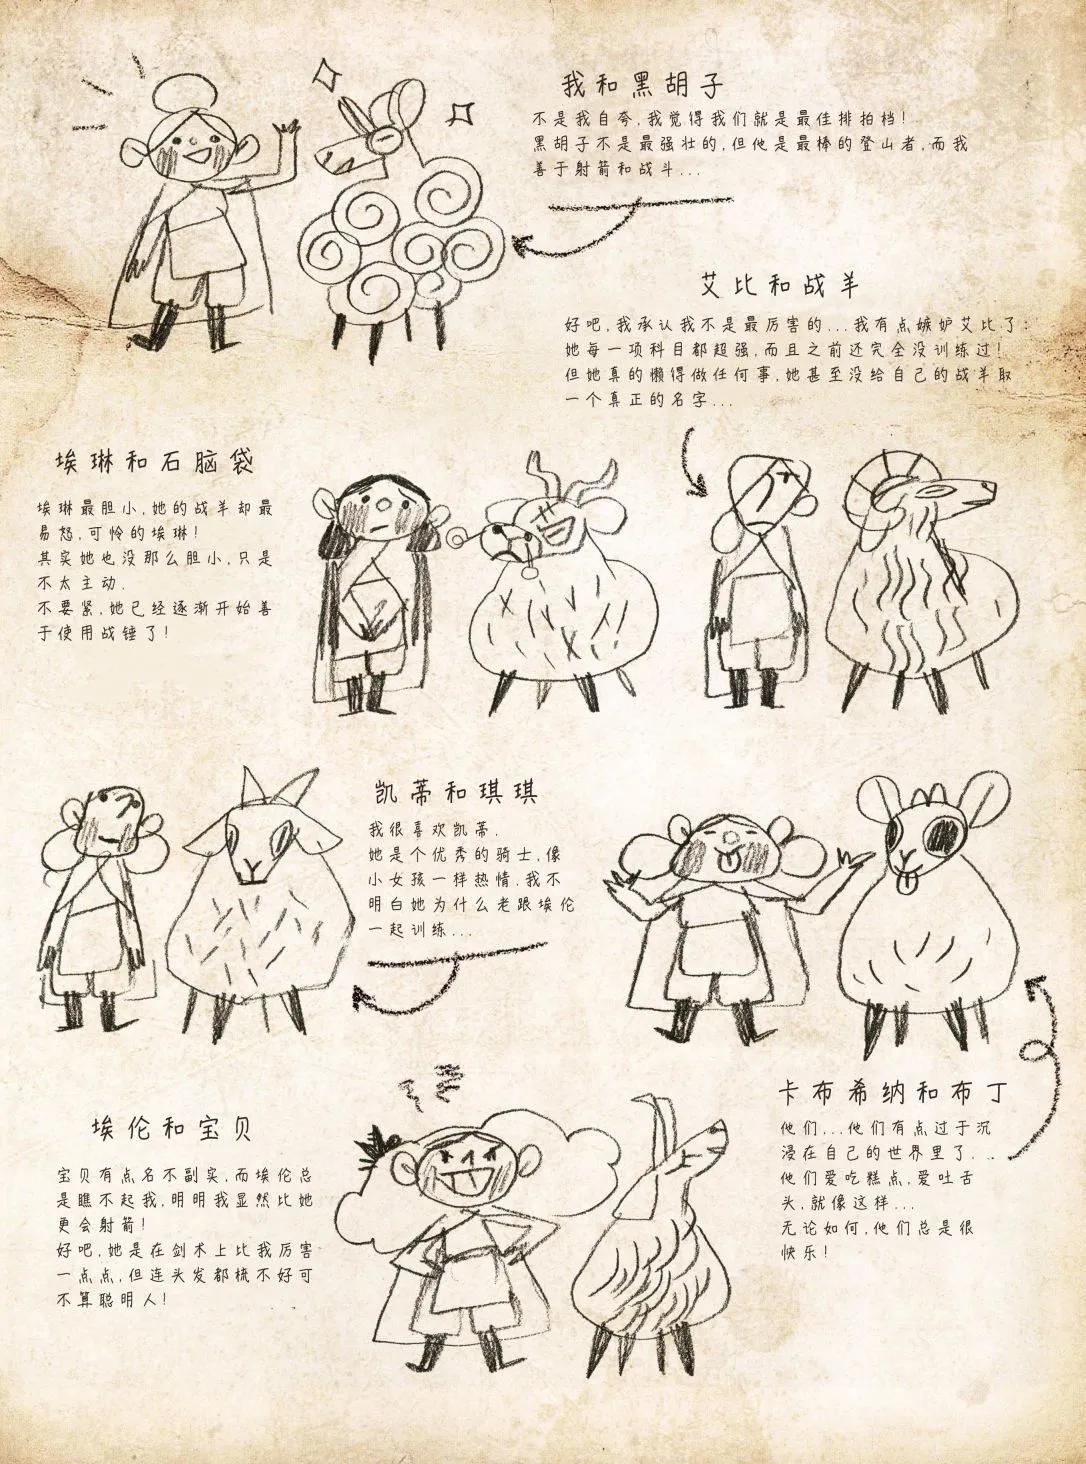 我和黑胡子
不是我自夸,我觉得我们就是最佳排拍档!
黑胡子不是最强壮的,但他是最棒的登山者,而我
善于射箭和战斗...
艾比和战羊
好吧,我承认我不是最厉害的...我有点嫉妒艾比了:
她每一项科目都超强,而且之前还完全没训练过!
但她真的懒得做任何事,她甚至没给自己的战羊取
一个真正的名字...
埃琳和石脑袋
埃琳最胆小,她的战羊却最
易怒,可怜的埃琳!
其实她也没那么胆小,只是
不太主动.
不要紧,她已经逐渐开始善
于使用战锤了!
凯蒂和琪琪
我很喜欢凯蒂.
她是个优秀的骑士,像
小女孩一样热情.我不
明白她为什么老跟埃伦
一起训练...
卡布希纳和布丁
他们...他们有点过于沉
浸在自己的世界里了...
他们爱吃糕点,爱吐舌
头,就像这样...
无论如何,他们总是很
快乐!
埃伦和宝贝
宝贝有点名不副实,而埃伦总
是瞧不起我,明明我显然比她
更会射箭!
好吧,她是在剑术上比我厉害
一点点,但连头发都梳不好可
不算聪明人!